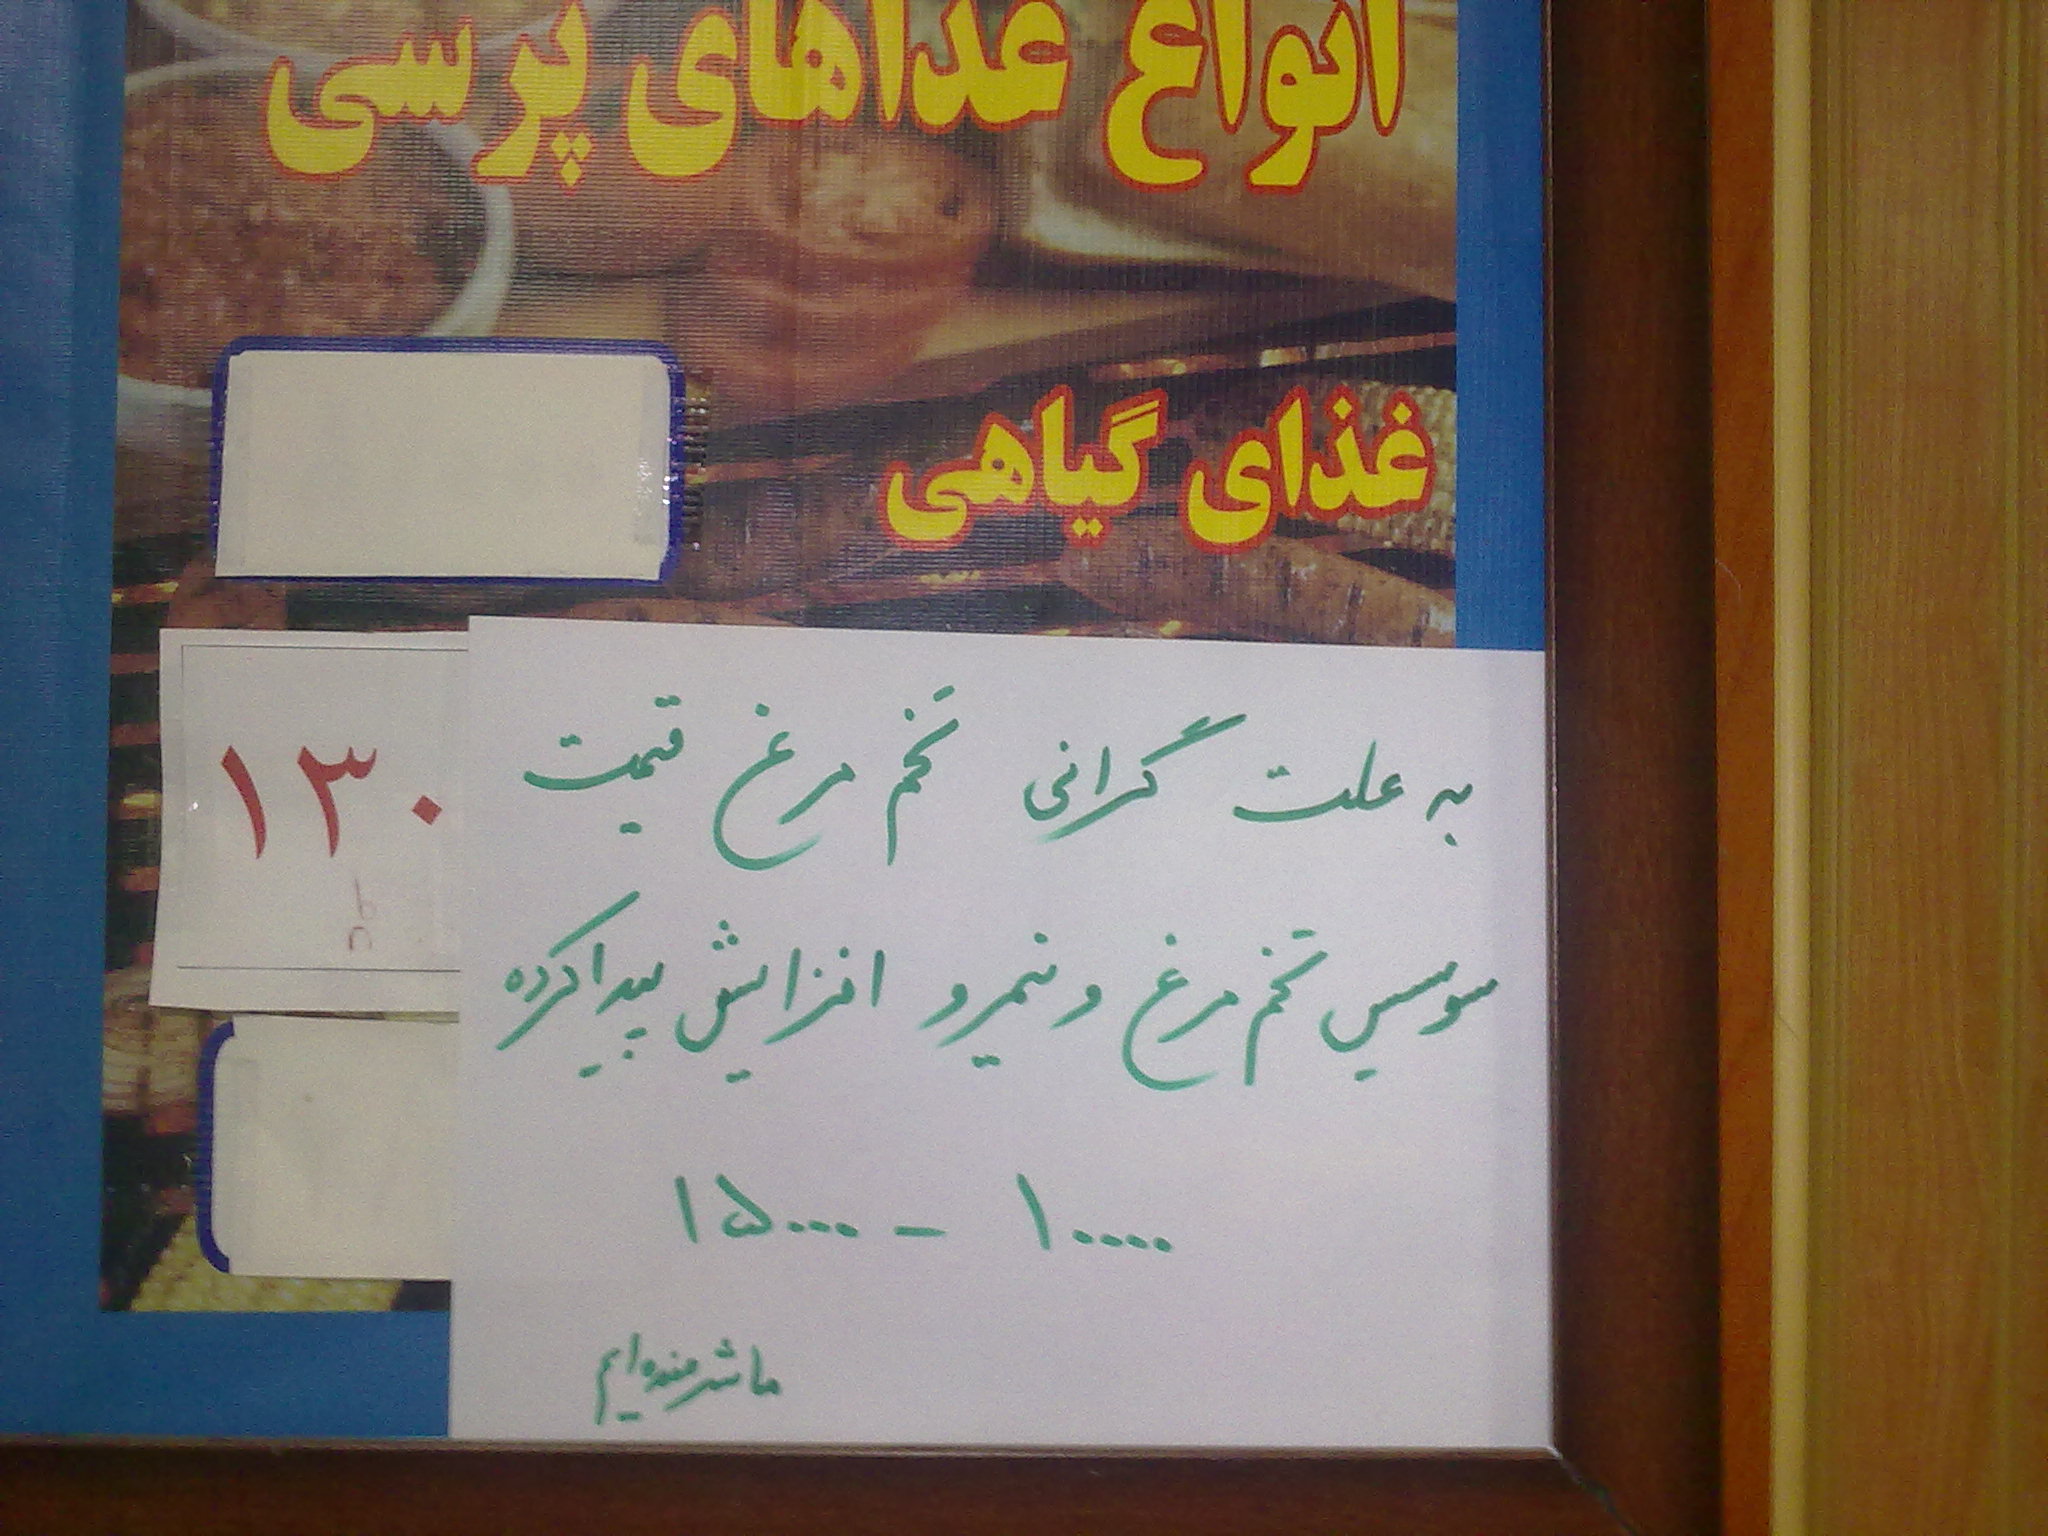 انواع غذاهای پرسی
غذای گیاهی
۱۳۰
به علت گرانی تخم مرغ قیمت
سوسیس تخم مرغ و نیمرو افزایش پیدا کرده
۱۵۰۰۰ - ۱۰۰۰۰
ما شرمنده ایم